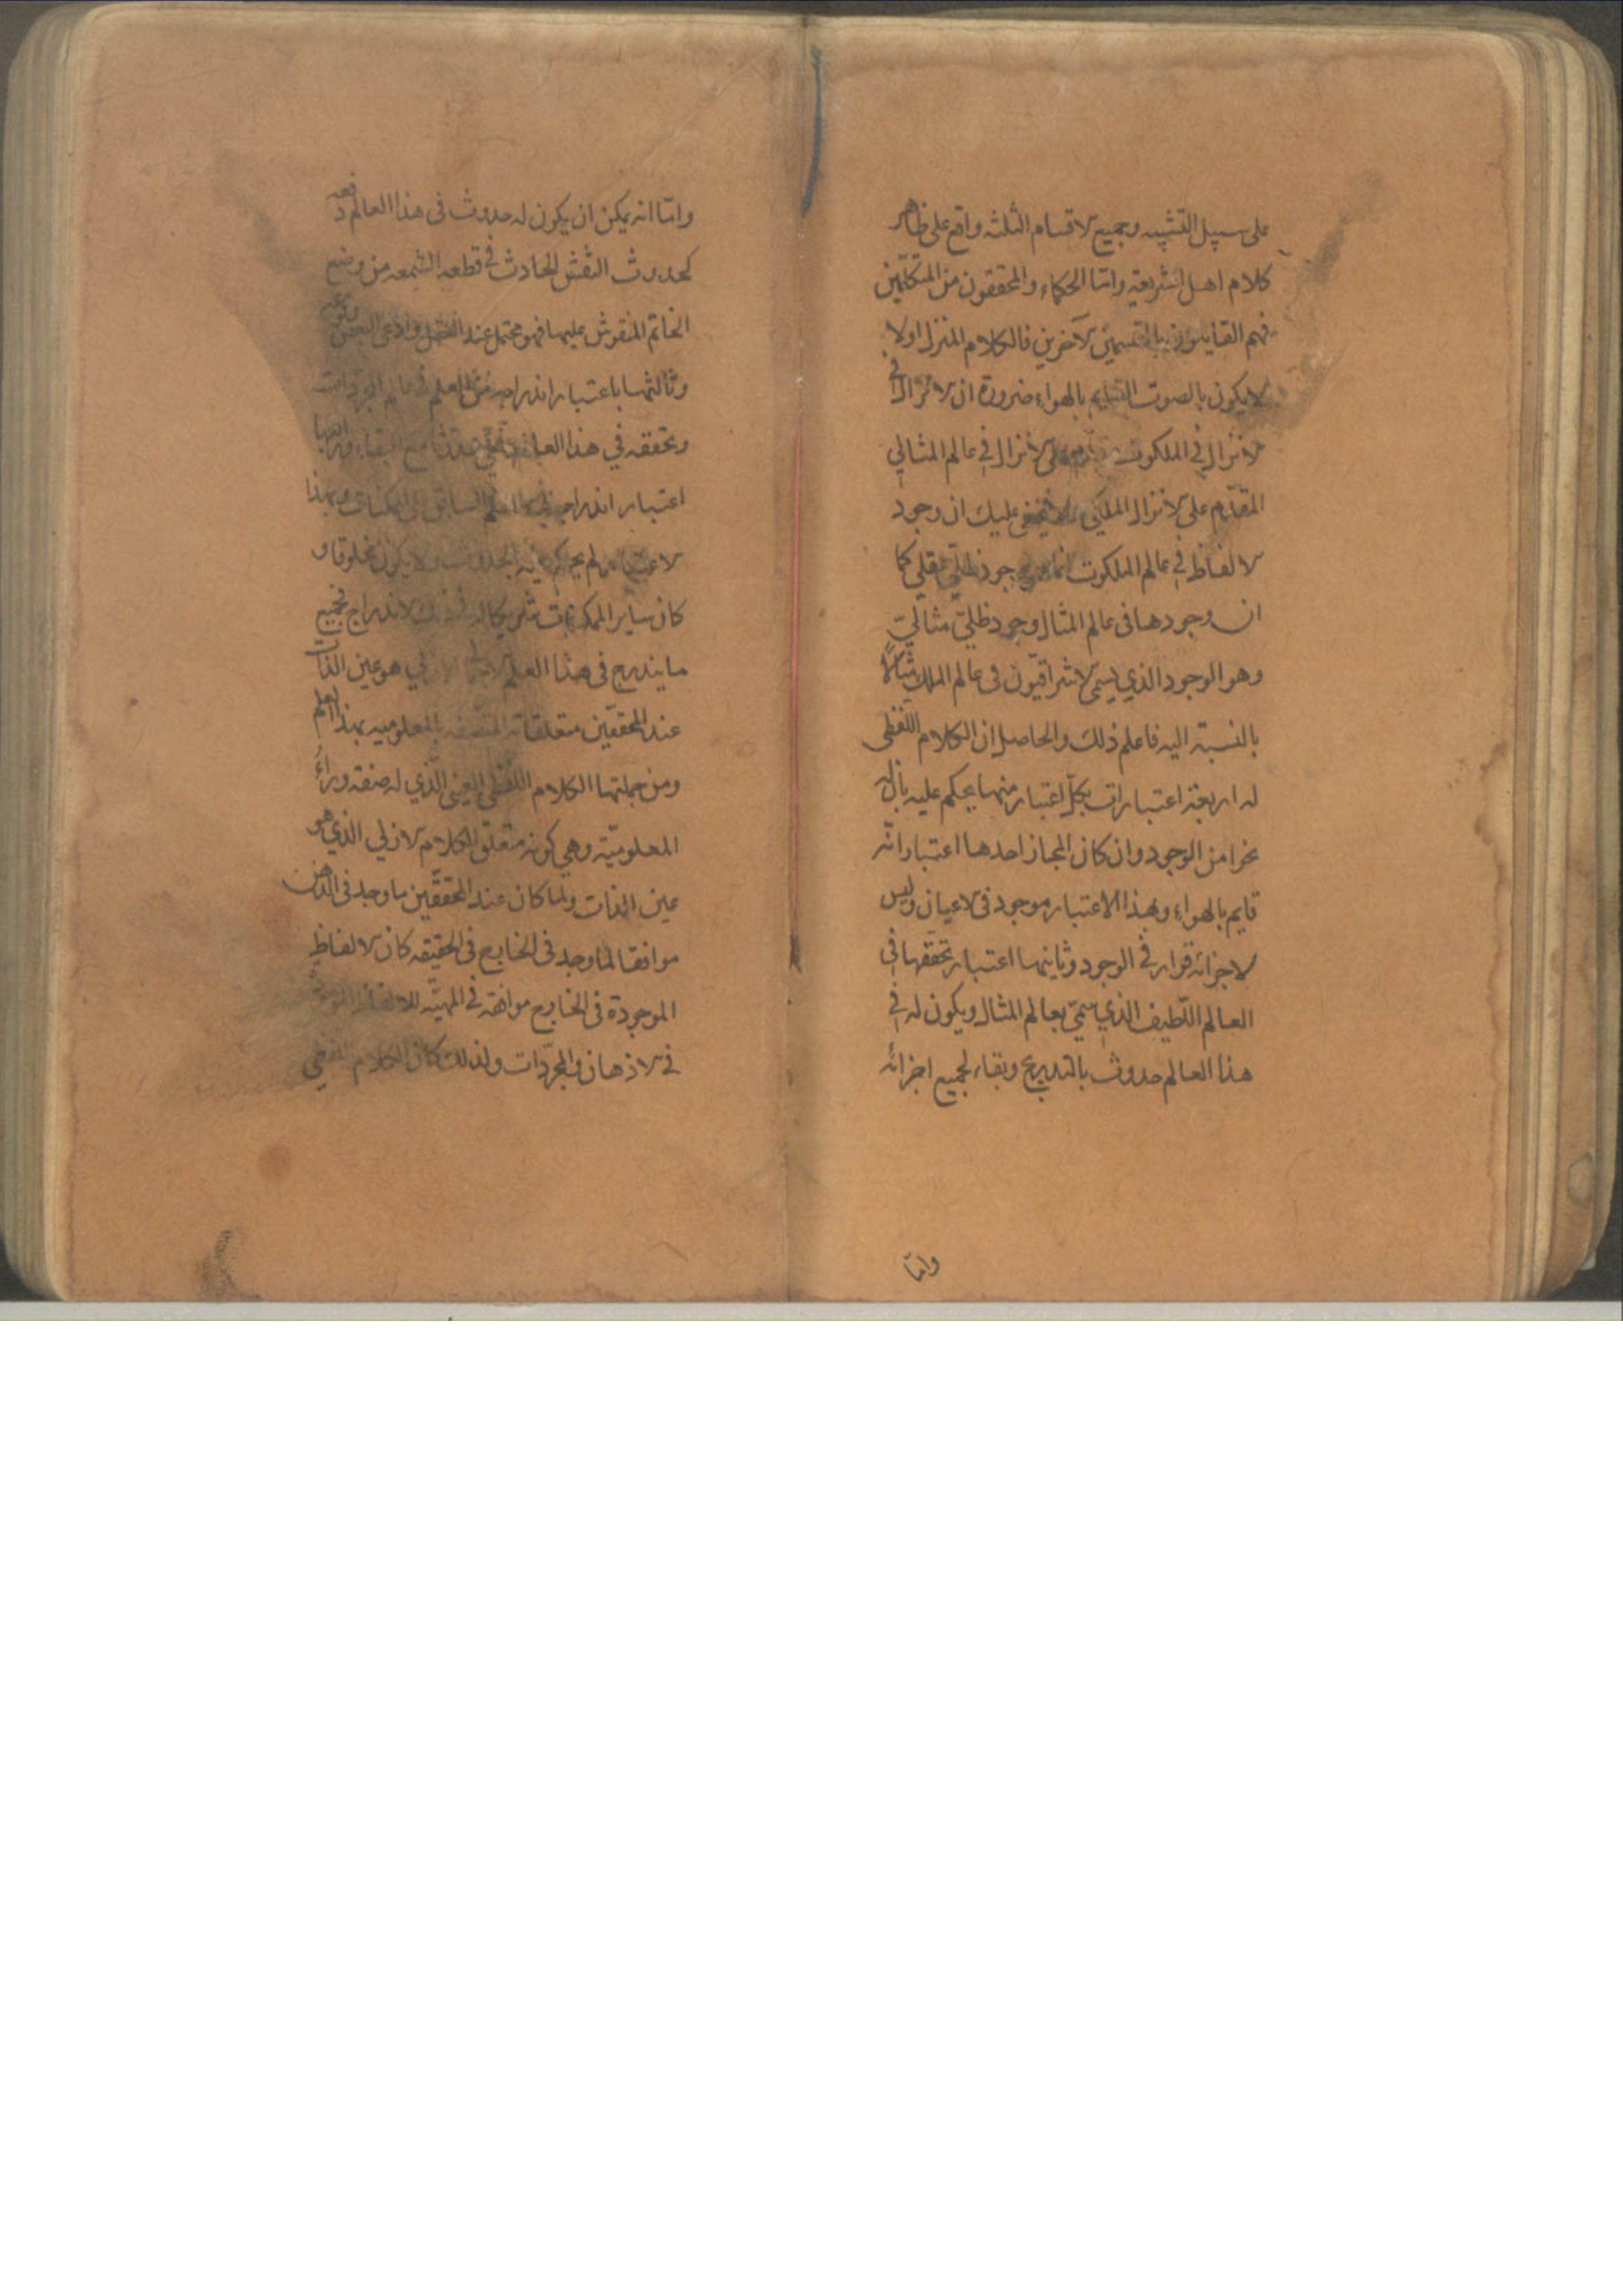 على سبيل التشبيه وجميع الاقسام الثلثه واقع على ظاهر
كلام اهل الشريعة وامّا الحكماء والمحققون من المتكلمين
فهم القايلون بالقسمين الآخرين فالكلام المنزل اولا
لا يكون بالصوت القايم بالهواء ضرورة ان الانزال في
الانزال في الملكوت على الانزال في عالم المثالي
المقدّم على الانزال الملكي عليك ان وجود
الالفاظ في عالم الملكوت وجود عقلي كما
ان وجودها في عالم المثال وجود ظلّي مثالي
وهو الوجود الذي يسمّى الاشراقيّون في عالم الملك مثالاً
بالنسبة اليه فاعلم ذلك والحاصل ان الكلام اللفظي
له اربعة اعتبارات بكلّ اعتبار منها يحكم عليه بان له
نحوا من الوجود وان كان المجاز احدها اعتبار انّه
قايم بالهواء وبهذا الاعتبار موجود في الاعيان وليس
لاجزائه قرار في الوجود وثانيها اعتبار تحققها في
العالم اللّطيف الذي يسمّى بعالم المثال ويكون له في
هذا العالم حدوث بالتدريج وبقاء لجميع اجزائه
وامّا
وامّا انه يمكن ان يكون له حدوث في هذا العالم دفعه
كحدوث النقش الحادث في قطعه الشمعه من وضع
الخاتم المنقوش عليها فهو محتمل عند العقل وادعى البعض
وثالثها باعتبار اندراجه في العلم في عالم
وتحققه في هذا العالم مع البقاء ورابعها
اعتبار اندراجه في العلم السابق الممكنات وبهذا
الاعتبار لم يحكم بالحدوث ولا يكون مخلوقا و
كان ساير الممكنات شريكا له في الاندراج فجميع
ما يندرج في هذا العلم هو عين الذات
عند المحققين متعلقاته بالمعلوميه بهذا العلم
ومن جملتها الكلام اللفظي الذي له صفة وراء
المعلوميّة وهي كونه متعلق الكلام الازلي الذي هو
عين الذات ولما كان عند المحققين ما وجد في الذهن
موافقا لما وجد في الخارج في الحقيقه كان الالفاظ
الموجودة في الخارج موافقة في المهيّه للالفاظ
في الاذهان والمجرّدات ولذلك كان الكلام